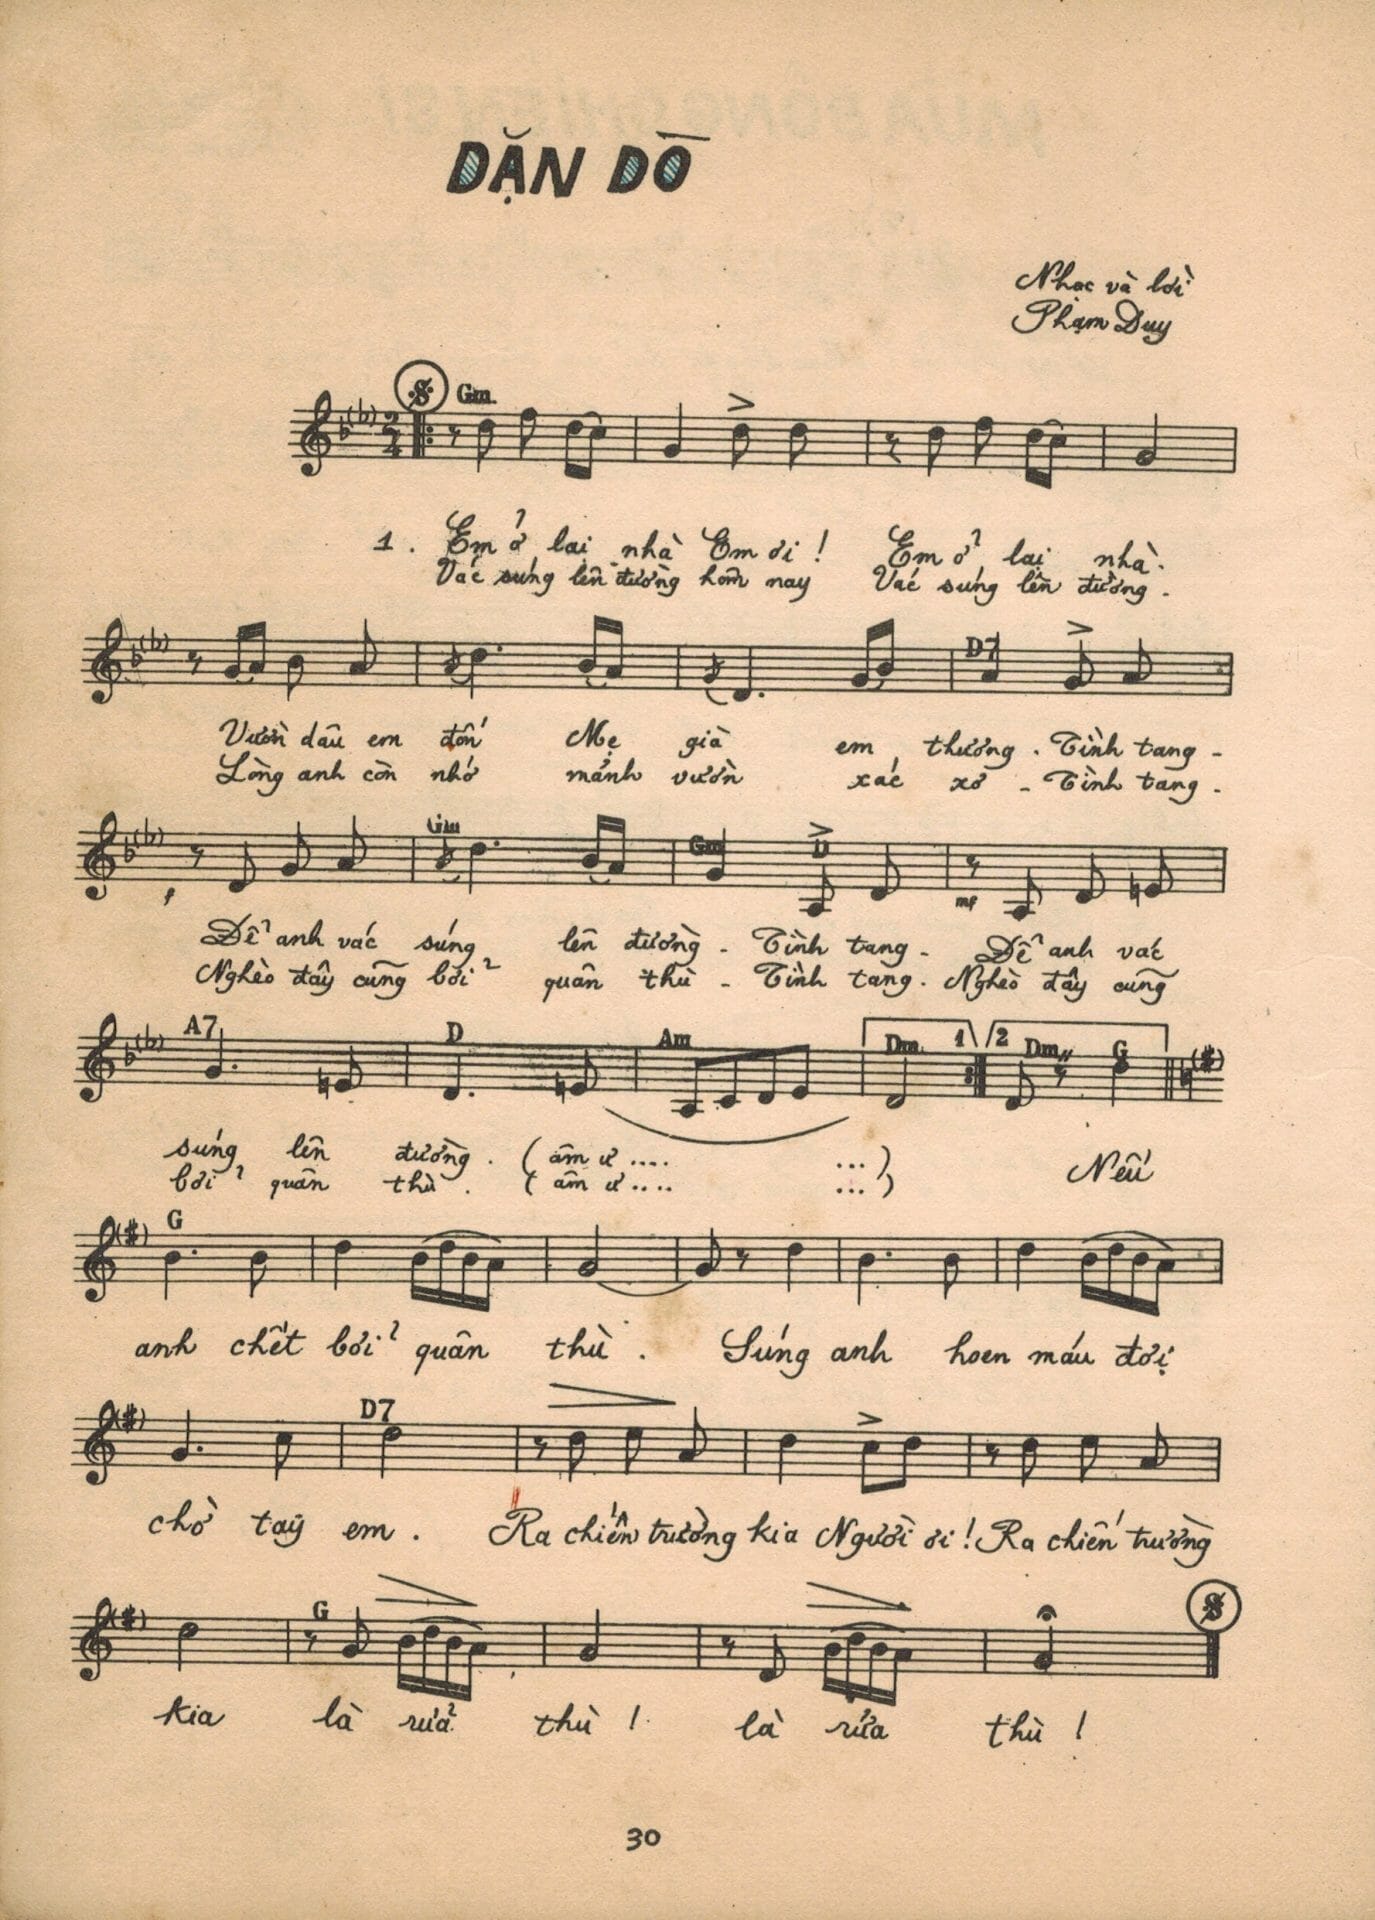 DẶN DÒ
Nhạc và lời
Phạm Duy
Gm.
1. Em ở lại nhà Em ơi! Em ở lại nhà.
Vác súng lên đường hôm nay Vác súng lên đường.
D7
Vườn dâu em đốn Mẹ già em thương. Tình tang -
Lòng anh còn nhớ mảnh vườn xác xơ - Tình tang.
Gm Gm D
mf
Để anh vác súng lên đường - Tình tang - Để anh vác
Nghèo đây cũng bởi quân thù - Tình tang. Nghèo đây cũng
A7 D Am Dm. 1 2 Dm G
súng lên đường. (âm ư .... ...)
bởi quân thù. (âm ư .... ...)
Nếu
G
anh chết bởi quân thù. Súng anh hoen máu đợi
D7
chờ tay em. Ra chiến trường kia Người ơi! Ra chiến trường
G
kia là rửa thù! là rửa thù!
30